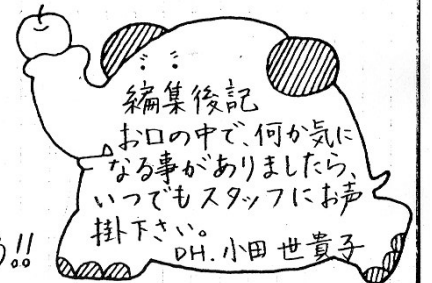 編集後記
お口の中で、何か気に
なる事がありましたら、
いつでもスタッフにお声
掛下さい。
DH. 小田 世貴子
う!!